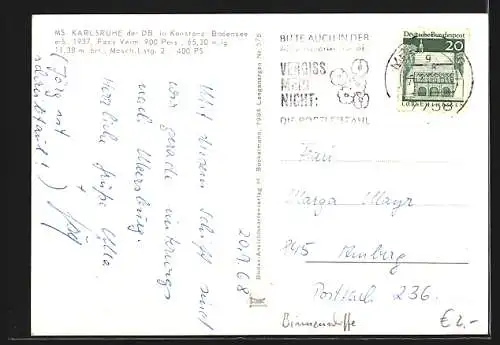 MS. KARLSRUHE der DB. in Konstanz Bodensee
erb. 1937, Pass. Verm. 900 Pers., 65,20 m lg.
11,38 m brt., Masch.Lstg. 2 400 PS
20.9.68
Mit diesem Schiff sind
wir gerade unterwegs
nach Meersburg.
Herzliche Grüße Ulla
+ Jörg
(Jörg mit
Bodan-Ansichtskartenverlag H. Bockelmann, 7994 Langenargen Nr. 576
BITTE AUCH IN DER
VERGISS
MEIN
NICHT:
DIE POSTLEITZAHL
Deutsche Bundespost
20
7758
Frau
Marga Mayr
845 Amberg
Postfach 236.
Binnenschiffe
€ 2,-